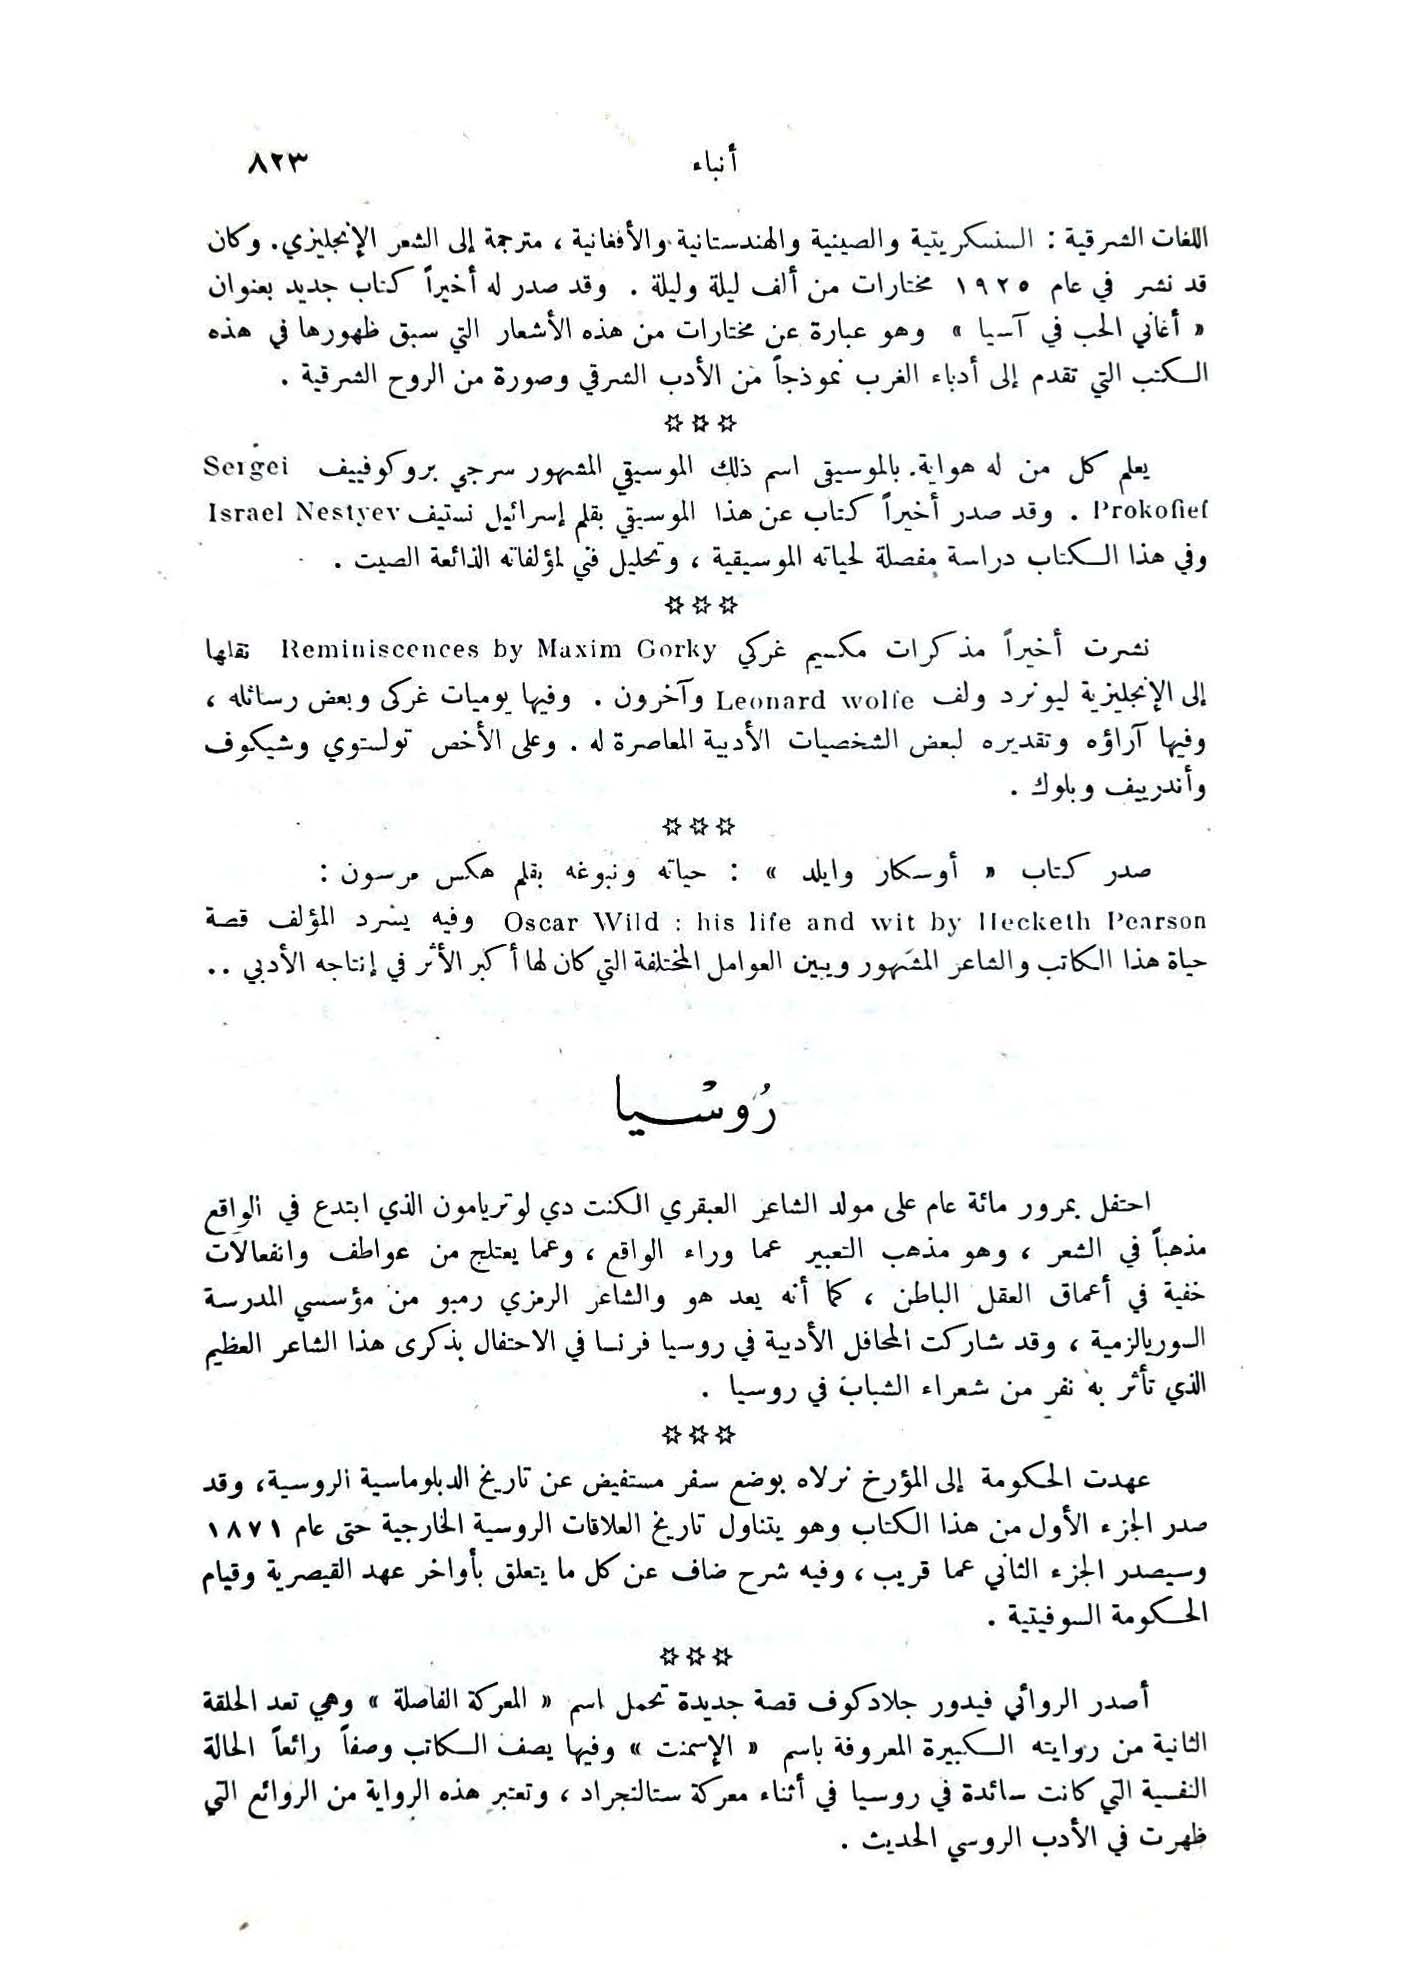 أنباء ٨٢٣
اللغات الشرقية : السنسكريتية والصينية والهندستانية والأفغانية ، مترجمة إلى الشعر الإنجليزي. وكان
قد نشر في عام ١٩٢٥ مختارات من ألف ليلة وليلة . وقد صدر له أخيراً كتاب جديد بعنوان
« أغاني الحب في آسيا » وهو عبارة عن مختارات من هذه الأشعار التي سبق ظهورها في هذه
الكتب التي تقدم إلى أدباء الغرب نموذجاً من الأدب الشرقي وصورة من الروح الشرقية .
***
يعلم كل من له هواية بالموسيقى اسم ذلك الموسيقي المشهور سرجي بروكوفييف Sergei
Prokofief . وقد صدر أخيراً كتاب عن هذا الموسيقي بقلم إسرائيل نستيف Israel Nestyev
وفي هذا الكتاب دراسة مفصلة لحياته الموسيقية ، وتحليل فني لمؤلفاته الذائعة الصيت .
***
نشرت أخيراً مذكرات مكسيم غركي Reminiscences by Maxim Gorky نقلها
إلى الإنجليزية ليونرد ولف Leonard wolfe وآخرون . وفيها يوميات غركى وبعض رسائله ،
وفيها آراؤه وتقديره لبعض الشخصيات الأدبية المعاصرة له . وعلى الأخص تولستوي وشيكوف
وأندرييف وبلوك .
***
صدر كتاب « أوسكار وايلد » : حياته ونبوغه بقلم هكس مرسون :
Oscar Wild : his life and wit by Hecketh Pearson وفيه يسرد المؤلف قصة
حياة هذا الكاتب والشاعر المشهور ويبين العوامل المختلفة التي كان لها أكبر الأثر في إنتاجه الأدبي ..
رُوسْيا
احتفل بمرور مائة عام على مولد الشاعر العبقري الكنت دي لوتريامون الذي ابتدع في الواقع
مذهباً في الشعر ، وهو مذهب التعبير عما وراء الواقع ، وعما يعتلج من عواطف وانفعالات
خفية في أعماق العقل الباطن ، كما أنه يعد هو والشاعر الرمزي رمبو من مؤسسي المدرسة
السوريالزمية ، وقد شاركت المحافل الأدبية في روسيا فرنسا في الاحتفال بذكرى هذا الشاعر العظيم
الذي تأثر به نفر من شعراء الشباب في روسيا .
***
عهدت الحكومة إلى المؤرخ نرلاه بوضع سفر مستفيض عن تاريخ الدبلوماسية الروسية، وقد
صدر الجزء الأول من هذا الكتاب وهو يتناول تاريخ العلاقات الروسية الخارجية حتى عام ١٨٧١
وسيصدر الجزء الثاني عما قريب ، وفيه شرح ضاف عن كل ما يتعلق بأواخر عهد القيصرية وقيام
الحكومة السوفيتية .
***
أصدر الروائي فيدور جلادكوف قصة جديدة تحمل اسم « المعركة الفاصلة » وهي تعد الحلقة
الثانية من روايته الكبيرة المعروفة باسم « الإسمنت » وفيها يصف الكاتب وصفاً رائعاً الحالة
النفسية التي كانت سائدة في روسيا في أثناء معركة ستالنجراد ، وتعتبر هذه الرواية من الروائع التي
ظهرت في الأدب الروسي الحديث .